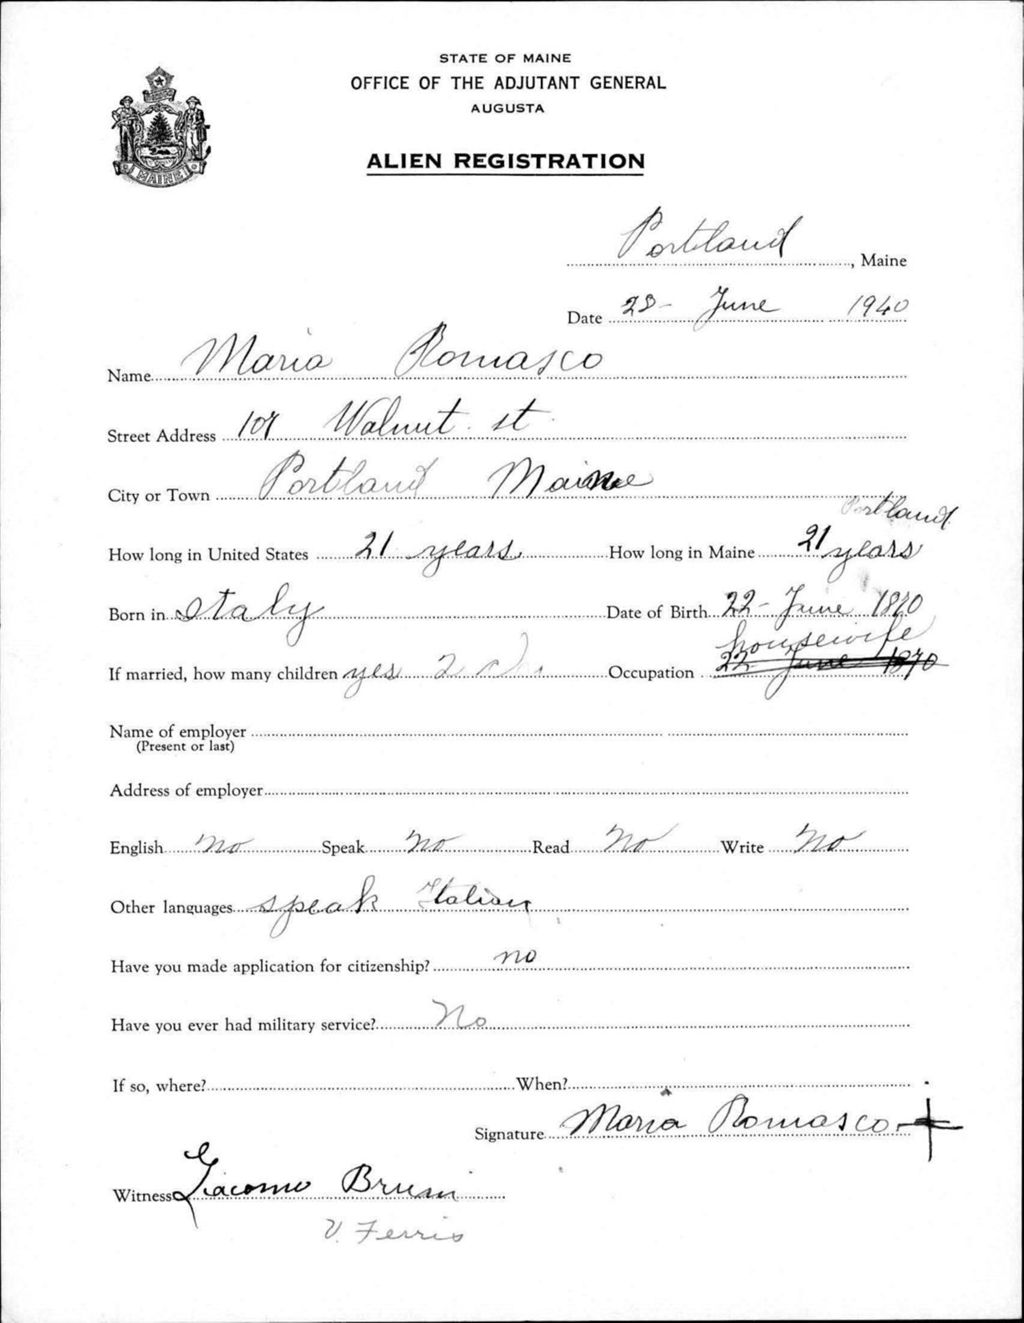 STATE OF MAINE
OFFICE OF THE ADJUTANT GENERAL
AUGUSTA
ALIEN REGISTRATION
MAINE
Portland, Maine
Date 28- June 1940
Name Maria Romasco
Street Address 107 Walnut st
City or Town Portland Maine
Portland
How long in United States 21 years How long in Maine 21 years
Born in Italy Date of Birth 22- June 1870
housewife
If married, how many children yes 2 Occupation 22 June 1870
Name of employer
(Present or last)
Address of employer
English No Speak No Read No Write No
Other languages speak Italian
Have you made application for citizenship? no
Have you ever had military service? No
If so, where? When?
Signature Maria Romasco +
Witness Giacomo Bruni
V. Ferris